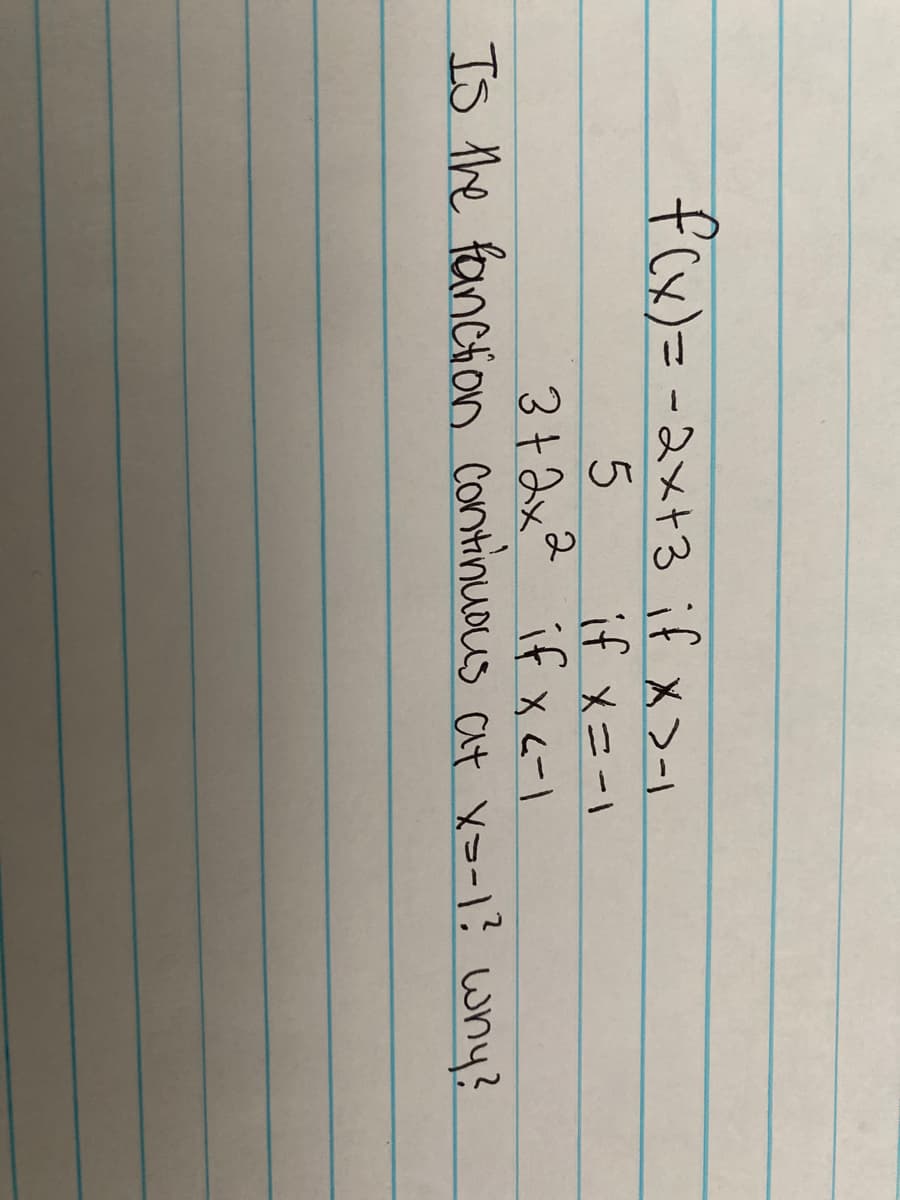 f(x) = -2x+3 if x > -1
5 if x = -1
3+2x² if x < -1
Is the fanction continuous at x=-1? why?